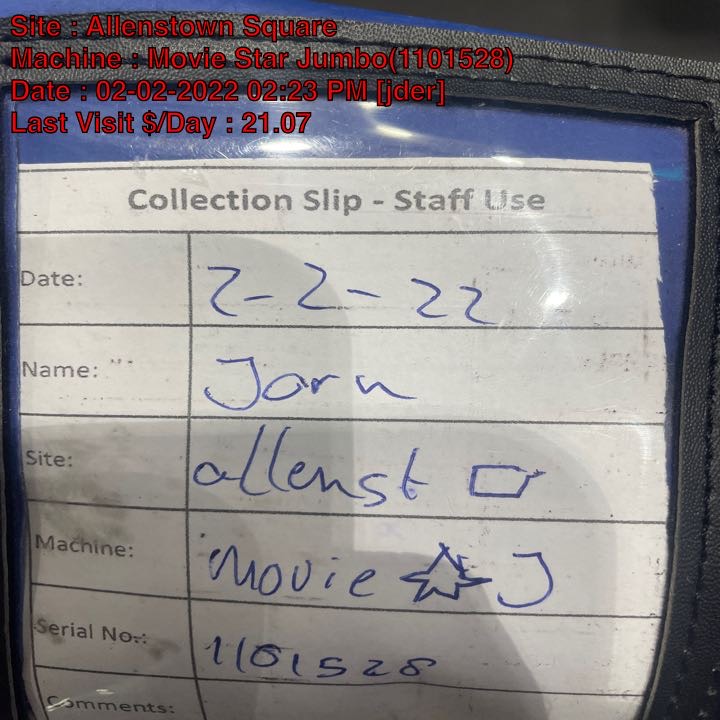 Site : Allenstown Square
Machine : Movie Star Jumbo(1101528)
Date : 02-02-2022 02:23 PM [jder]
Last Visit $/Day : 21.07
Collection Slip - Staff Use
Date: 2-2-22
Name: Jorn
Site: allenst
Machine: Movie ☆ J
Serial No.: 1101528
Comments: